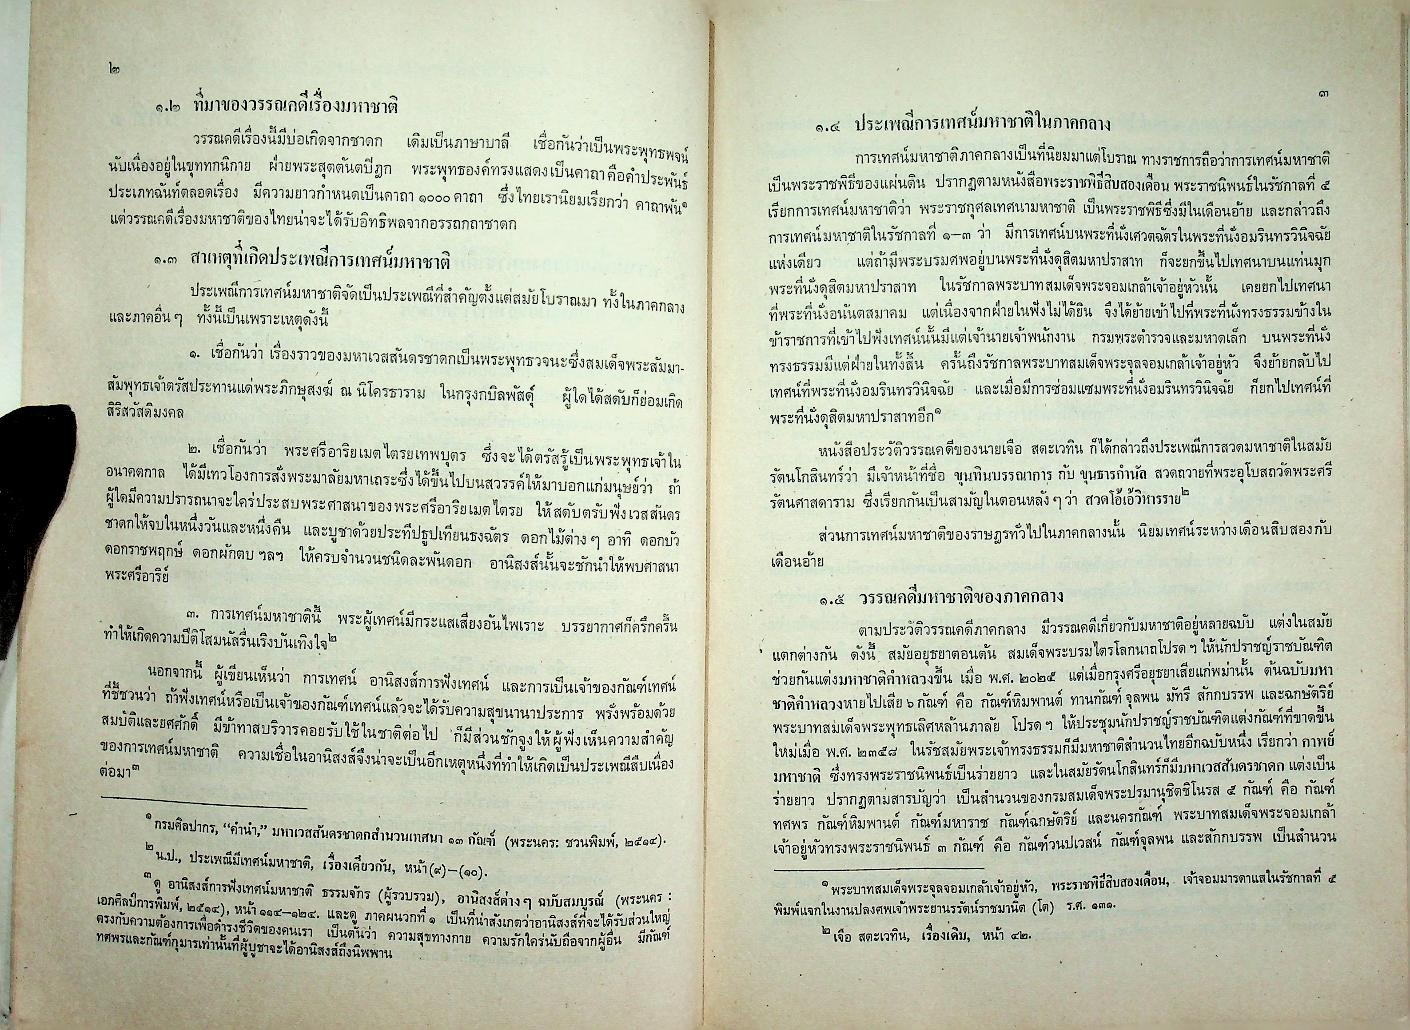 ๒
๑.๒ ที่มาของวรรณคดีเรื่องมหาชาติ
วรรณคดีเรื่องนี้มีบ่อเกิดจากชาดก เดิมเป็นภาษาบาลี เชื่อกันว่าเป็นพระพุทธพจน์
นับเนื่องอยู่ในขุททกนิกาย ฝ่ายพระสุตตันตปิฎก พระพุทธองค์ทรงแสดงเป็นคาถาคือคำประพันธ์
ประเภทฉันท์ตลอดเรื่อง มีความยาวกำหนดเป็นคาถา ๑๐๐๐ คาถา ซึ่งไทยเรานิยมเรียกว่า คาถาพัน๑
แต่วรรณคดีเรื่องมหาชาติของไทยน่าจะได้รับอิทธิพลจากอรรถกถาชาดก
๑.๓ สาเหตุที่เกิดประเพณีการเทศน์มหาชาติ
ประเพณีการเทศน์มหาชาติจัดเป็นประเพณีที่สำคัญตั้งแต่สมัยโบราณมา ทั้งในภาคกลาง
และภาคอื่น ๆ ทั้งนี้เป็นเพราะเหตุดังนี้
๑. เชื่อกันว่า เรื่องราวของมหาเวสสันดรชาดกเป็นพระพุทธวจนะซึ่งสมเด็จพระสัมมา-
สัมพุทธเจ้าตรัสประทานแด่พระภิกษุสงฆ์ ณ นิโครธาราม ในกรุงกบิลพัสดุ์ ผู้ใดได้สดับก็ย่อมเกิด
สิริสวัสดิมงคล
๒. เชื่อกันว่า พระศรีอาริยเมตไตรยเทพบุตร ซึ่งจะได้ตรัสรู้เป็นพระพุทธเจ้าใน
อนาคตกาล ได้มีเทวโองการสั่งพระมาลัยมหาเถระซึ่งได้ขึ้นไปบนสวรรค์ให้มาบอกแก่มนุษย์ว่า ถ้า
ผู้ใดมีความปรารถนาจะใคร่ประสบพระศาสนาของพระศรีอาริยเมตไตรย ให้สดับตรับฟังเวสสันดร
ชาดกให้จบในหนึ่งวันและหนึ่งคืน และบูชาด้วยประทีปธูปเทียนธงฉัตร ดอกไม้ต่าง ๆ อาทิ ดอกบัว
ดอกราชพฤกษ์ ดอกผักตบ ฯลฯ ให้ครบจำนวนชนิดละพันดอก อานิสงส์นั้นจะชักนำให้พบศาสนา
พระศรีอาริย์
๓. การเทศน์มหาชาตินี้ พระผู้เทศน์มีกระแสเสียงอันไพเราะ บรรยากาศก็ครึกครื้น
ทำให้เกิดความปีติโสมนัสรื่นเริงบันเทิงใจ๒
นอกจากนี้ ผู้เขียนเห็นว่า การเทศน์ อานิสงส์การฟังเทศน์ และการเป็นเจ้าของกัณฑ์เทศน์
ที่ชี้ชวนว่า ถ้าฟังเทศน์หรือเป็นเจ้าของกัณฑ์เทศน์แล้วจะได้รับความสุขนานาประการ พรั่งพร้อมด้วย
สมบัติและยศศักดิ์ มีข้าทาสบริวารคอยรับใช้ในชาติต่อไป ก็มีส่วนชักจูงให้ผู้ฟังเห็นความสำคัญ
ของการเทศน์มหาชาติ ความเชื่อในอานิสงส์จึงน่าจะเป็นอีกเหตุหนึ่งที่ทำให้เกิดเป็นประเพณีสืบเนื่อง
ต่อมา๓
๑ กรมศิลปากร, “คำนำ,” มหาเวสสันดรชาดกสำนวนเทศนา ๑๓ กัณฑ์ (พระนคร: ชวนพิมพ์, ๒๕๑๔).
๒ น.ป., ประเพณีมีเทศน์มหาชาติ, เรื่องเดียวกัน, หน้า (๙)–(๑๐).
๓ ดู อานิสงส์การฟังเทศน์มหาชาติ ธรรมจักร (ผู้รวบรวม), อานิสงส์ต่าง ๆ ฉบับสมบูรณ์ (พระนคร :
เอกศิลป์การพิมพ์, ๒๕๑๔), หน้า ๑๑๔–๑๒๔. และดู ภาคผนวกที่ ๑ เป็นที่น่าสังเกตว่าอานิสงส์ที่จะได้รับส่วนใหญ่
ตรงกับความต้องการเพื่อดำรงชีวิตของคนเรา เป็นต้นว่า ความสุขทางกาย ความรักใคร่นับถือจากผู้อื่น มีกัณฑ์
ทศพรและกัณฑ์กุมารเท่านั้นที่ผู้บูชาจะได้อานิสงส์ถึงนิพพาน
๓
๑.๔ ประเพณีการเทศน์มหาชาติในภาคกลาง
การเทศน์มหาชาติภาคกลางเป็นที่นิยมมาแต่โบราณ ทางราชการถือว่าการเทศน์มหาชาติ
เป็นพระราชพิธีของแผ่นดิน ปรากฏตามหนังสือพระราชพิธีสิบสองเดือน พระราชนิพนธ์ในรัชกาลที่ ๕
เรียกการเทศน์มหาชาติว่า พระราชกุศลเทศนามหาชาติ เป็นพระราชพิธีซึ่งมีในเดือนอ้าย และกล่าวถึง
การเทศน์มหาชาติในรัชกาลที่ ๑–๓ ว่า มีการเทศน์บนพระที่นั่งเศวตฉัตรในพระที่นั่งอมรินทรวินิจฉัย
แห่งเดียว แต่ถ้ามีพระบรมศพอยู่บนพระที่นั่งดุสิตมหาปราสาท ก็จะยกขึ้นไปเทศนาบนแท่นมุก
พระที่นั่งดุสิตมหาปราสาท ในรัชกาลพระบาทสมเด็จพระจอมเกล้าเจ้าอยู่หัวนั้น เคยยกไปเทศนา
ที่พระที่นั่งอนันตสมาคม แต่เนื่องจากฝ่ายในฟังไม่ได้ยิน จึงได้ย้ายเข้าไปที่พระที่นั่งทรงธรรมข้างใน
ข้าราชการที่เข้าไปฟังเทศน์นั้นมีแต่เจ้านายเจ้าพนักงาน กรมพระตำรวจและมหาดเล็ก บนพระที่นั่ง
ทรงธรรมมีแต่ฝ่ายในทั้งสิ้น ครั้นถึงรัชกาลพระบาทสมเด็จพระจุลจอมเกล้าเจ้าอยู่หัว จึงย้ายกลับไป
เทศน์ที่พระที่นั่งอมรินทรวินิจฉัย และเมื่อมีการซ่อมแซมพระที่นั่งอมรินทรวินิจฉัย ก็ยกไปเทศน์ที่
พระที่นั่งดุสิตมหาปราสาทอีก๑
หนังสือประวัติวรรณคดีของนายเจือ สตะเวทิน ก็ได้กล่าวถึงประเพณีการสวดมหาชาติในสมัย
รัตนโกสินทร์ว่า มีเจ้าหน้าที่ชื่อ ขุนทินบรรณาการ กับ ขุนธารกำนัล สวดถวายที่พระอุโบสถวัดพระศรี
รัตนศาสดาราม ซึ่งเรียกกันเป็นสามัญในตอนหลัง ๆ ว่า สวดโอ้เอ้วิหารราย๒
ส่วนการเทศน์มหาชาติของราษฎรทั่วไปในภาคกลางนั้น นิยมเทศน์ระหว่างเดือนสิบสองกับ
เดือนอ้าย
๑.๕ วรรณคดีมหาชาติของภาคกลาง
ตามประวัติวรรณคดีภาคกลาง มีวรรณคดีเกี่ยวกับมหาชาติอยู่หลายฉบับ แต่งในสมัย
แตกต่างกัน ดังนี้ สมัยอยุธยาตอนต้น สมเด็จพระบรมไตรโลกนาถโปรด ฯ ให้นักปราชญ์ราชบัณฑิต
ช่วยกันแต่งมหาชาติคำหลวงขึ้น เมื่อ พ.ศ. ๒๐๒๕ แต่เมื่อกรุงศรีอยุธยาเสียแก่พม่านั้น ต้นฉบับมหา
ชาติคำหลวงหายไปเสีย ๖ กัณฑ์ คือ กัณฑ์หิมพานต์ ทานกัณฑ์ จุลพน มัทรี สักกบรรพ และฉกษัตริย์
พระบาทสมเด็จพระพุทธเลิศหล้านภาลัย โปรด ฯ ให้ประชุมนักปราชญ์ราชบัณฑิตแต่งกัณฑ์ที่ขาดขึ้น
ใหม่เมื่อ พ.ศ. ๒๓๕๘ ในรัชสมัยพระเจ้าทรงธรรมก็มีมหาชาติสำนวนไทยอีกฉบับหนึ่ง เรียกว่า กาพย์
มหาชาติ ซึ่งทรงพระราชนิพนธ์เป็นร่ายยาว และในสมัยรัตนโกสินทร์ก็มีมหาเวสสันดรชาดก แต่งเป็น
ร่ายยาว ปรากฏตามสารบัญว่า เป็นสำนวนของกรมสมเด็จพระปรมานุชิตชิโนรส ๕ กัณฑ์ คือ กัณฑ์
ทศพร กัณฑ์หิมพานต์ กัณฑ์มหาราช กัณฑ์ฉกษัตริย์ และนครกัณฑ์ พระบาทสมเด็จพระจอมเกล้า
เจ้าอยู่หัวทรงพระราชนิพนธ์ ๓ กัณฑ์ คือ กัณฑ์วนปเวสน์ กัณฑ์จุลพน และสักกบรรพ เป็นสำนวน
๑ พระบาทสมเด็จพระจุลจอมเกล้าเจ้าอยู่หัว, พระราชพิธีสิบสองเดือน, เจ้าจอมมารดาแสในรัชกาลที่ ๕
พิมพ์แจกในงานปลงศพเจ้าพระยานรรัตน์ราชมานิต (โต) ร.ศ. ๑๓๑.
๒ เจือ สตะเวทิน, เรื่องเดิม, หน้า ๔๒.